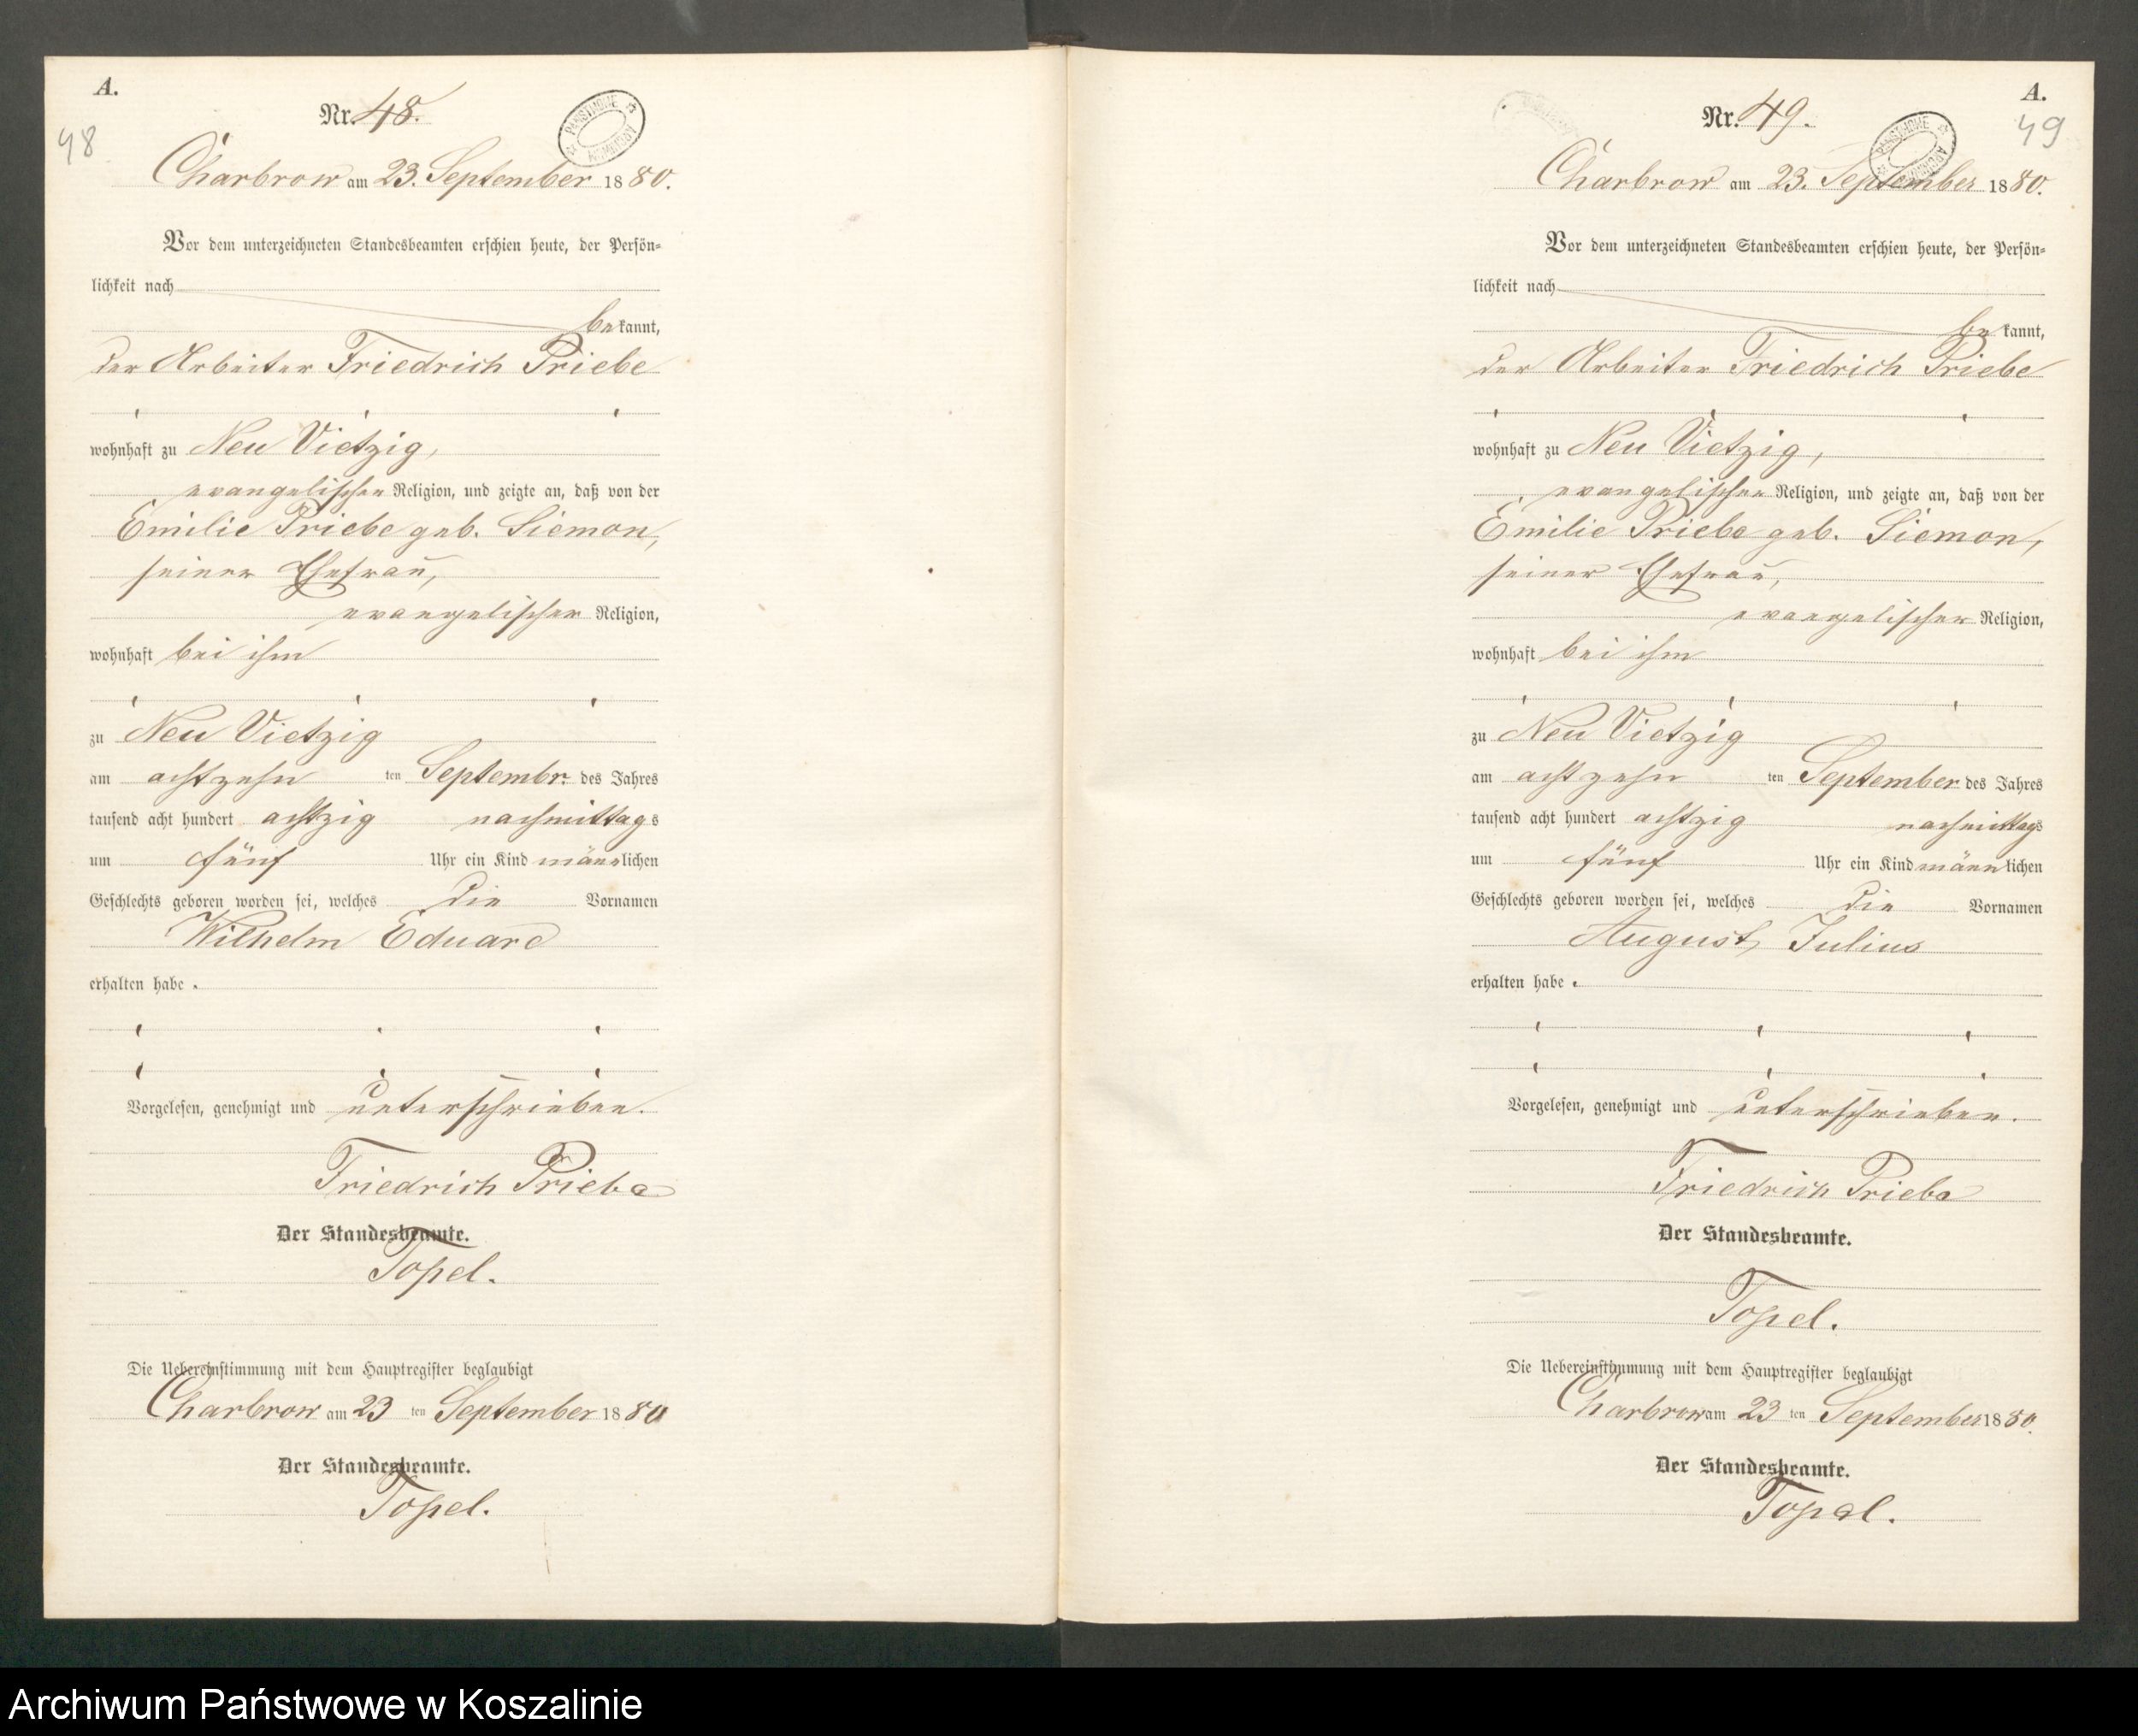 A.
Nr. 48.
48
PAŃSTWOWE ARCHIWUM
Charbrow am 23. September 1880.
Vor dem unterzeichneten Standesbeamten erschien heute, der Persön-
lichkeit nach
bekannt,
der Arbeiter Friedrich Priebe
wohnhaft zu Neu Vietzig,
evangelischer Religion, und zeigte an, daß von der
Emilie Priebe geb. Siemon,
seiner Ehefrau,
evangelischer Religion,
wohnhaft bei ihm
zu Neu Vietzig
am achtzehn ten Septembr. des Jahres
tausend acht hundert achtzig nachmittags
um fünf Uhr ein Kind männlichen
Geschlechts geboren worden sei, welches die Vornamen
Wilhelm Eduard
erhalten habe.
Vorgelesen, genehmigt und unterschrieben.
Friedrich Priebe
Der Standesbeamte.
Topel.
Die Uebereinstimmung mit dem Hauptregister beglaubigt
Charbrow am 23 ten September 1880
Der Standesbeamte.
Topel.
A.
Nr. 49.
49
PAŃSTWOWE ARCHIWUM
Charbrow am 23. September 1880.
Vor dem unterzeichneten Standesbeamten erschien heute, der Persön-
lichkeit nach
bekannt,
der Arbeiter Friedrich Priebe
wohnhaft zu Neu Vietzig,
evangelischer Religion, und zeigte an, daß von der
Emilie Priebe geb. Siemon,
seiner Ehefrau,
evangelischer Religion,
wohnhaft bei ihm
zu Neu Vietzig
am achtzehn ten September des Jahres
tausend acht hundert achtzig nachmittags
um fünf Uhr ein Kind männlichen
Geschlechts geboren worden sei, welches die Vornamen
August Julius
erhalten habe.
Vorgelesen, genehmigt und unterschrieben.
Friedrich Priebe
Der Standesbeamte.
Topel.
Die Uebereinstimmung mit dem Hauptregister beglaubigt
Charbrow am 23 ten September 1880.
Der Standesbeamte.
Topel.
Archiwum Państwowe w Koszalinie